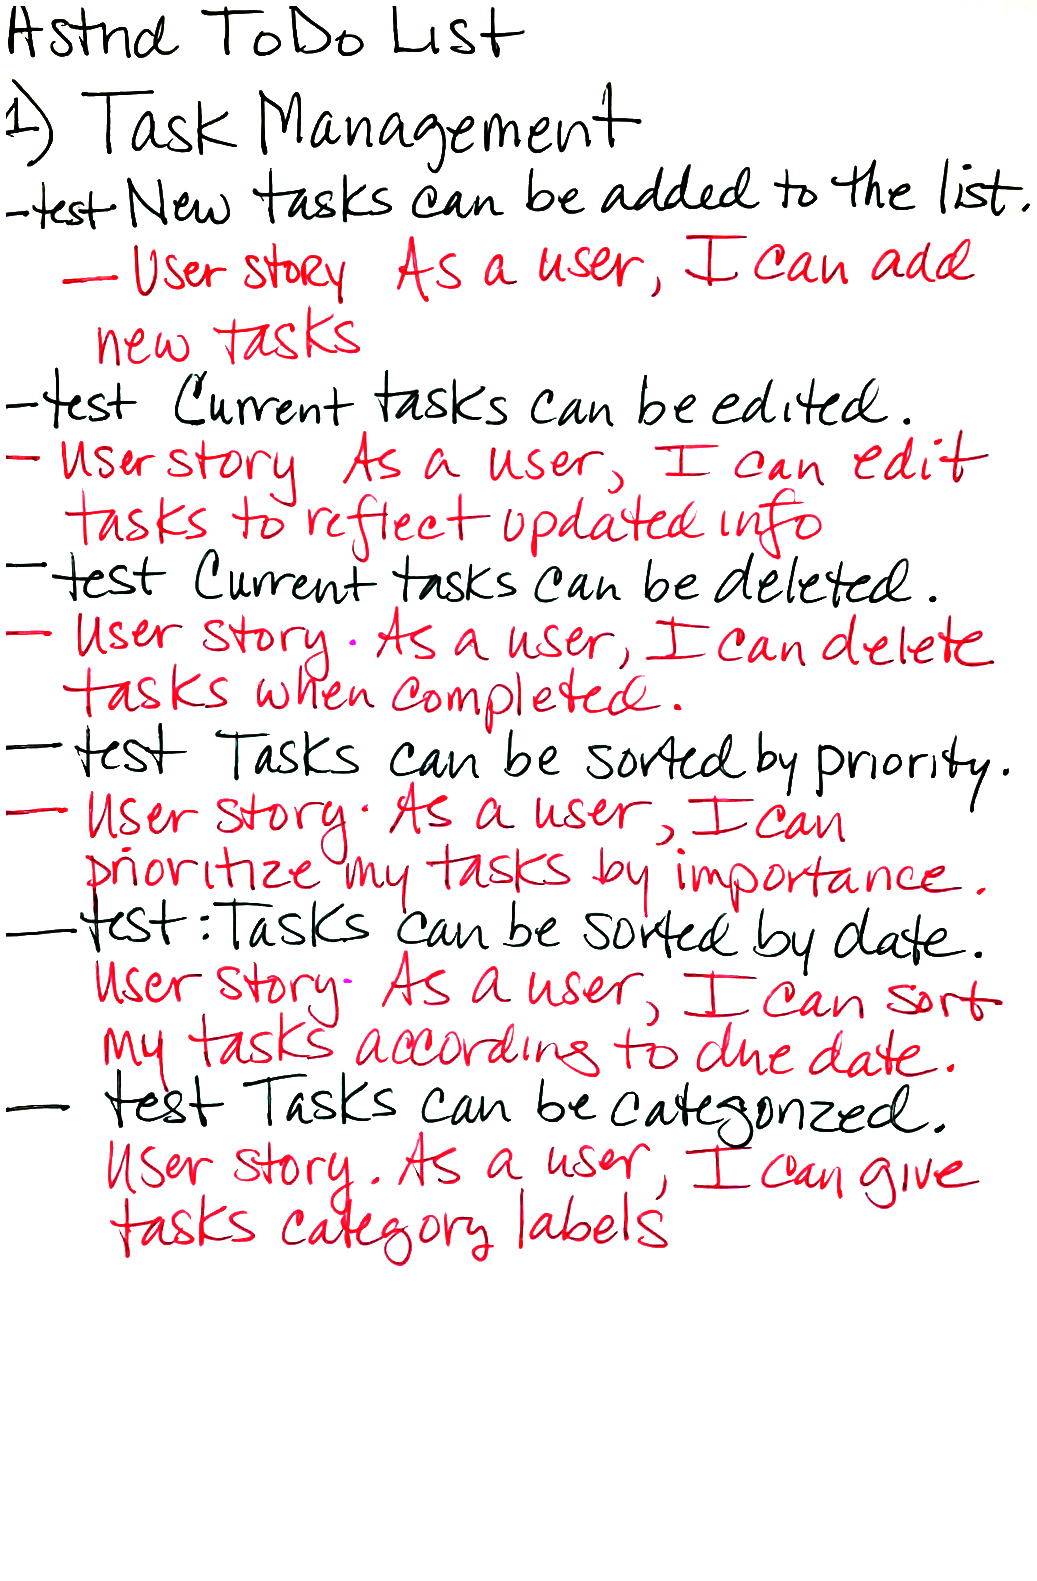 Astrid ToDo List
1) Task Management
- test New tasks can be added to the list.
- User story As a user, I can add
new tasks
- test Current tasks can be edited.
- User story As a user, I can edit
tasks to reflect updated info
- test Current tasks can be deleted.
- User story. As a user, I can delete
tasks when completed.
- test Tasks can be sorted by priority.
- User story. As a user, I can
prioritize my tasks by importance.
- test: Tasks can be sorted by date.
User story. As a user, I can sort
my tasks according to due date.
- test Tasks can be categorized.
User story. As a user, I can give
tasks category labels